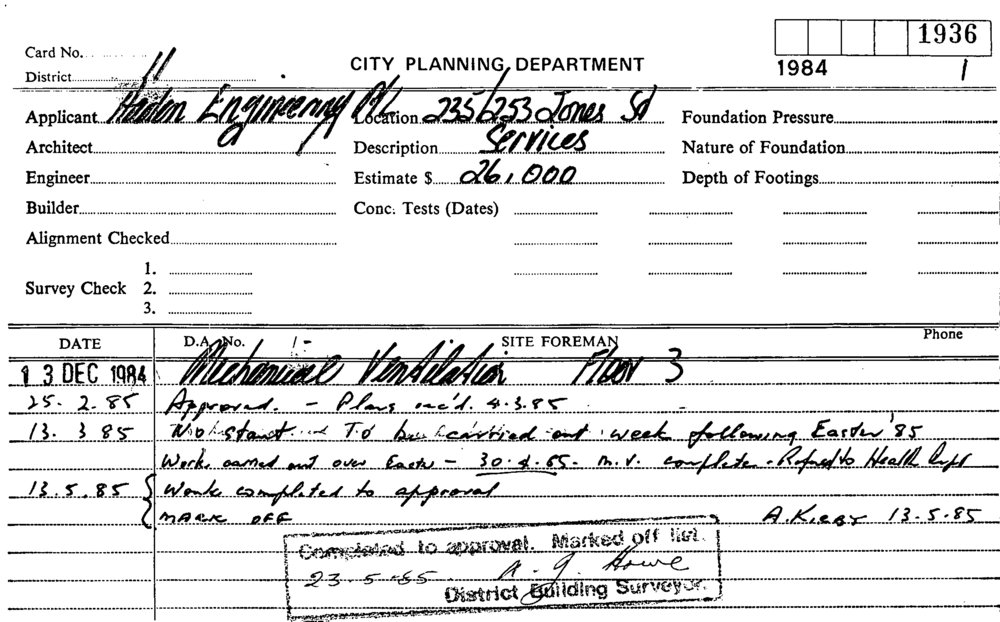 1936
Card No. 11
CITY PLANNING DEPARTMENT
1984 1
District
Applicant Haden Engineering P/L Location 235/253 Jones St Foundation Pressure
Architect Description Services Nature of Foundation
Engineer Estimate $ 26,000 Depth of Footings
Builder Conc. Tests (Dates)
Alignment Checked
1.
Survey Check 2.
3.
DATE D.A. No. /- SITE FOREMAN Phone
13 DEC 1984 Mechanical Ventilation Floor 3
25. 2. 85 Approved. - Plans rec'd. 4.3.85
13. 3 85 No start To be carried out week following Easter '85
Work carried out over Easter - 30.4.85. m.v. complete. Refused to Health Dept
13.5.85 Work completed to approval
MARK OFF A. Kirby 13.5.85
Completed to approval. Marked off list.
23-5-85. A. J. Howe
District Building Surveyor.